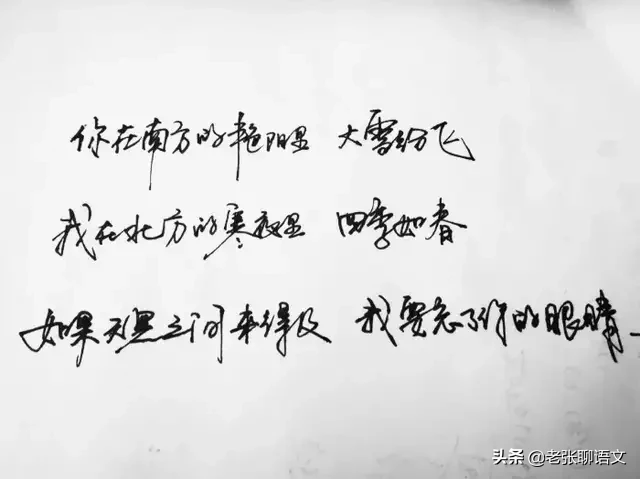 你在南方的艳阳里 大雪纷飞
我在北方的寒夜里 四季如春
如果天黑之前来得及 我要忘了你的眼睛
头条 @老张聊语文